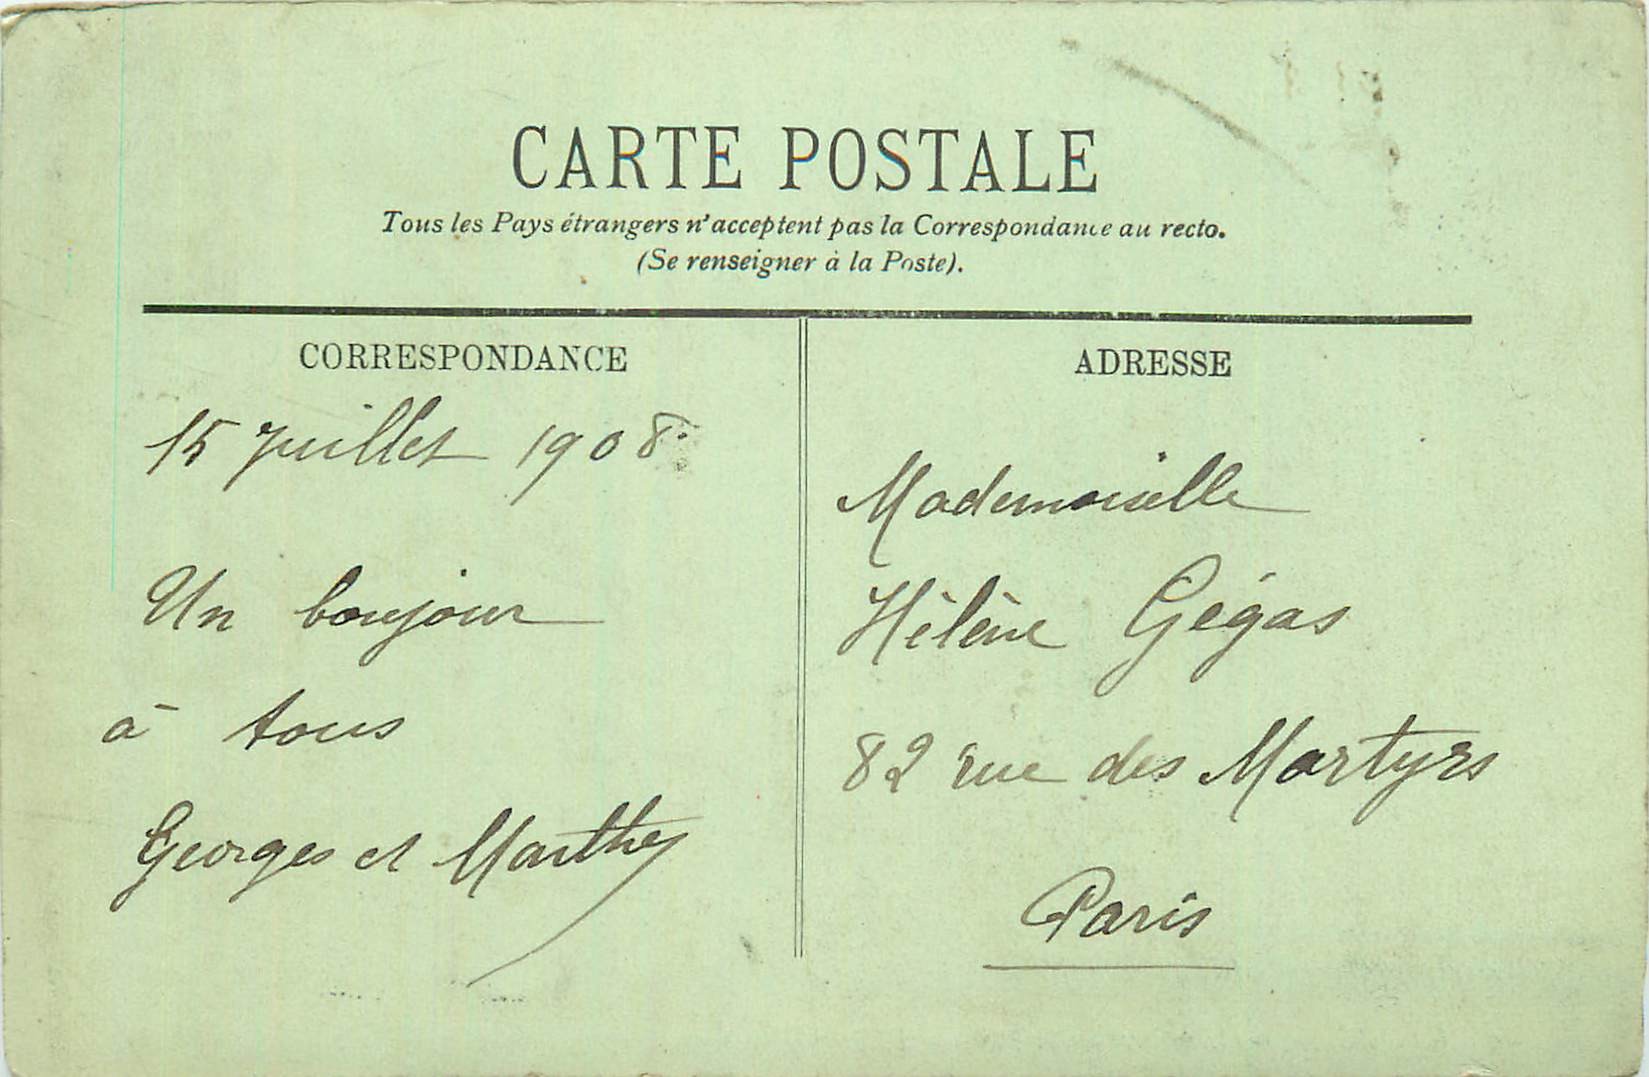 CARTE POSTALE
Tous les Pays étrangers n'acceptent pas la Correspondance au recto.
(Se renseigner à la Poste).
CORRESPONDANCE
15 Juillet 1908.
Un bonjour
à tous
Georges et Marthe
ADRESSE
Mademoiselle
Hélène Gégas
82 rue des Martyrs
Paris